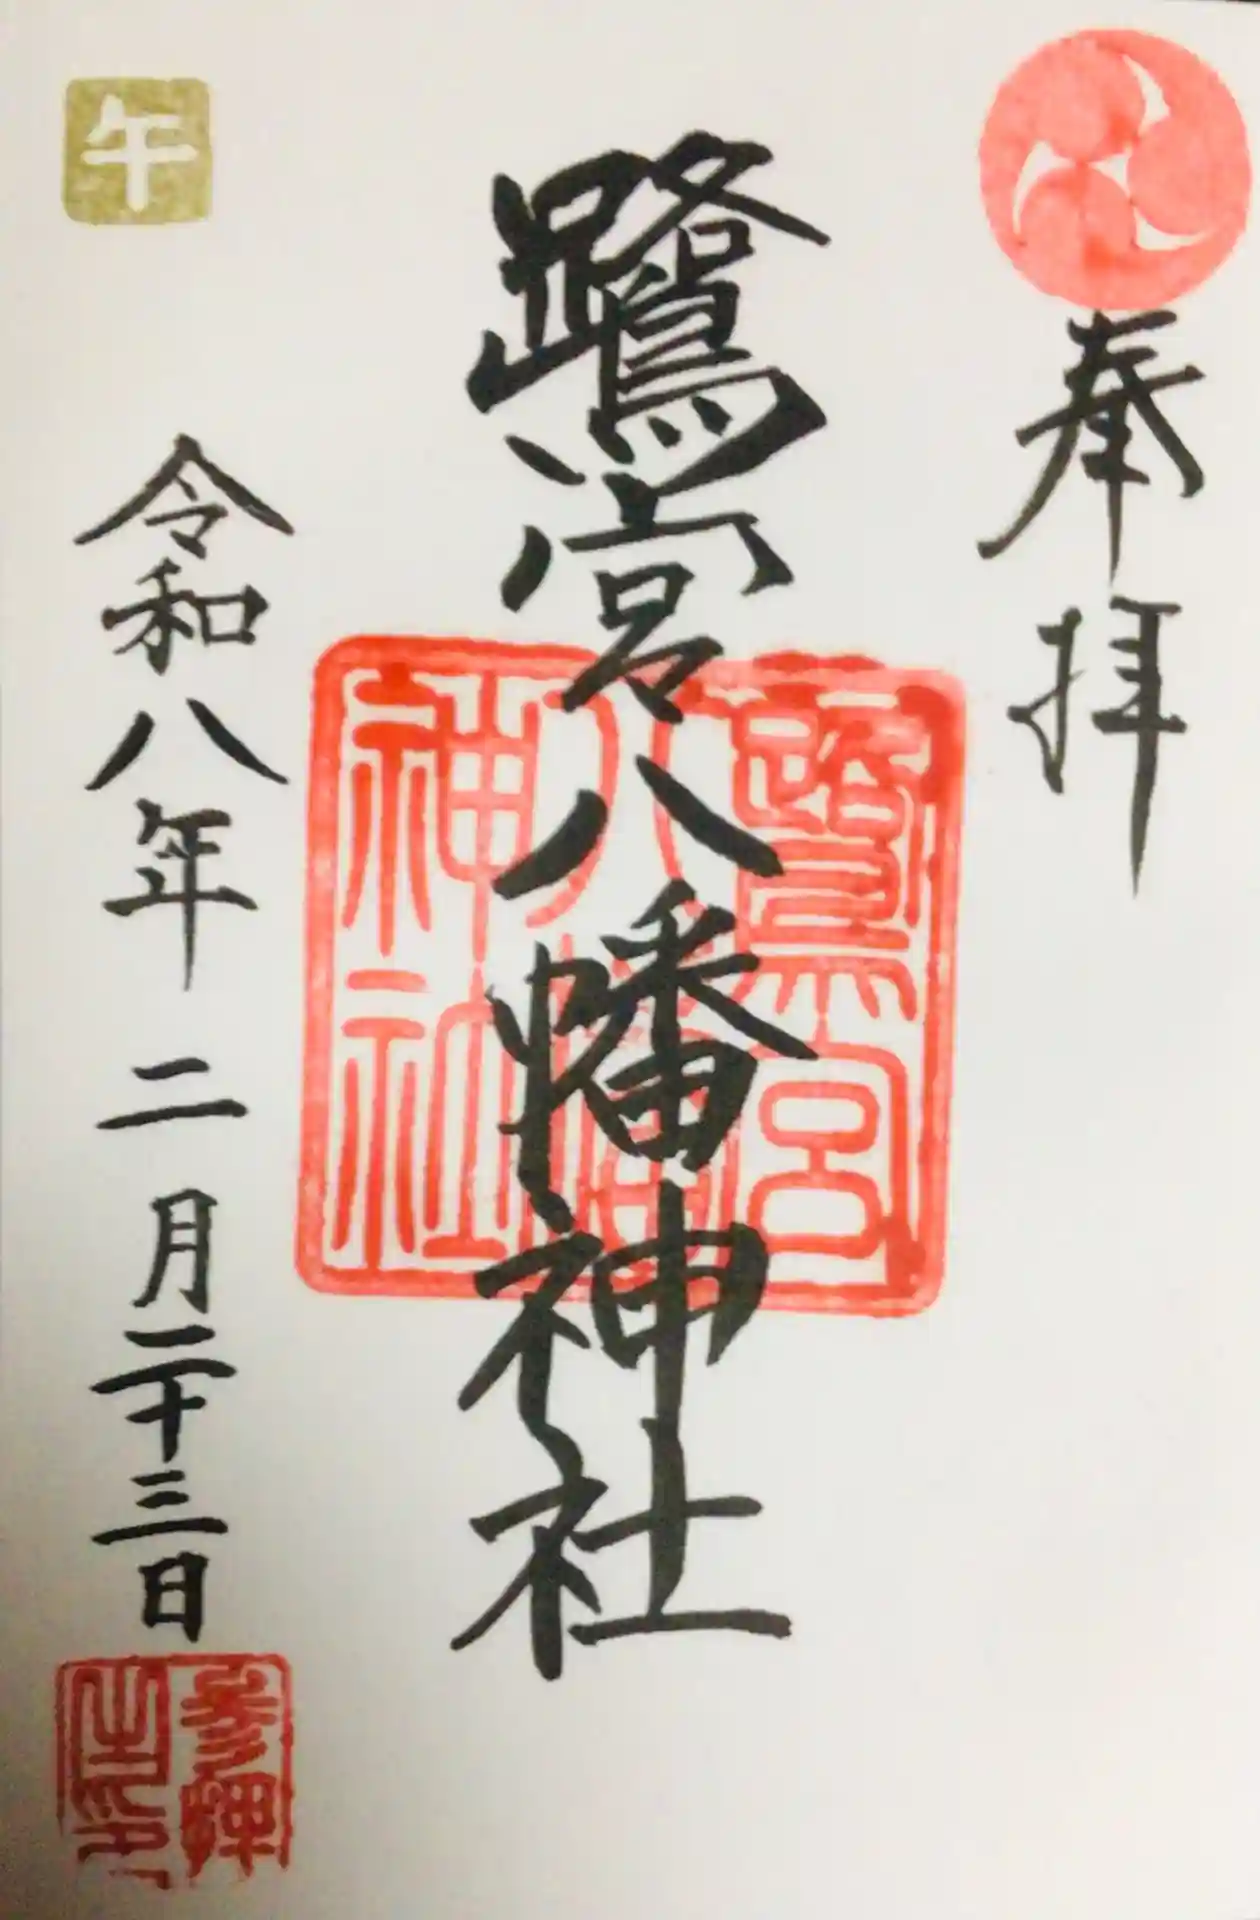 奉拝
鷺宮八幡神社
鷺宮
八幡
神社
午
令和八年 二月二十三日
参拝
之印